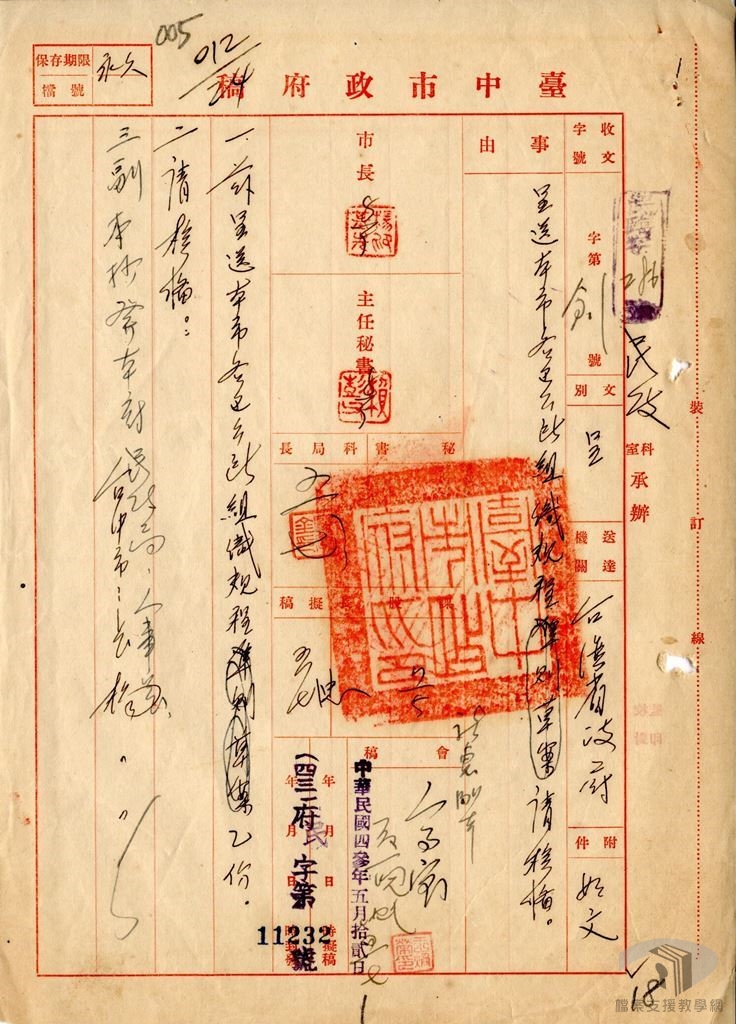 005
012
24
保存期限
永久
檔號
臺中市政府稿
收文
字第 號
字號
民政
科室
承辦
文別
呈
送達機關
台灣省政府
附件
如文
事由
呈送本市各區公所組織規程準則草案請核備。
市長
主任秘書
秘書
科局長
股長
擬稿
會稿
人事室
一、茲呈送本市各區公所組織規程準則草案乙份。
二、請核備。
三、副本抄發本府民政局、人事室
台中市市長楊
年 月 日 時擬稿
年 月 日 時封發
中華民國四參年五月拾貳日
(四三)府民字第
11232
號
裝
訂
線
18
檔案支援教學網